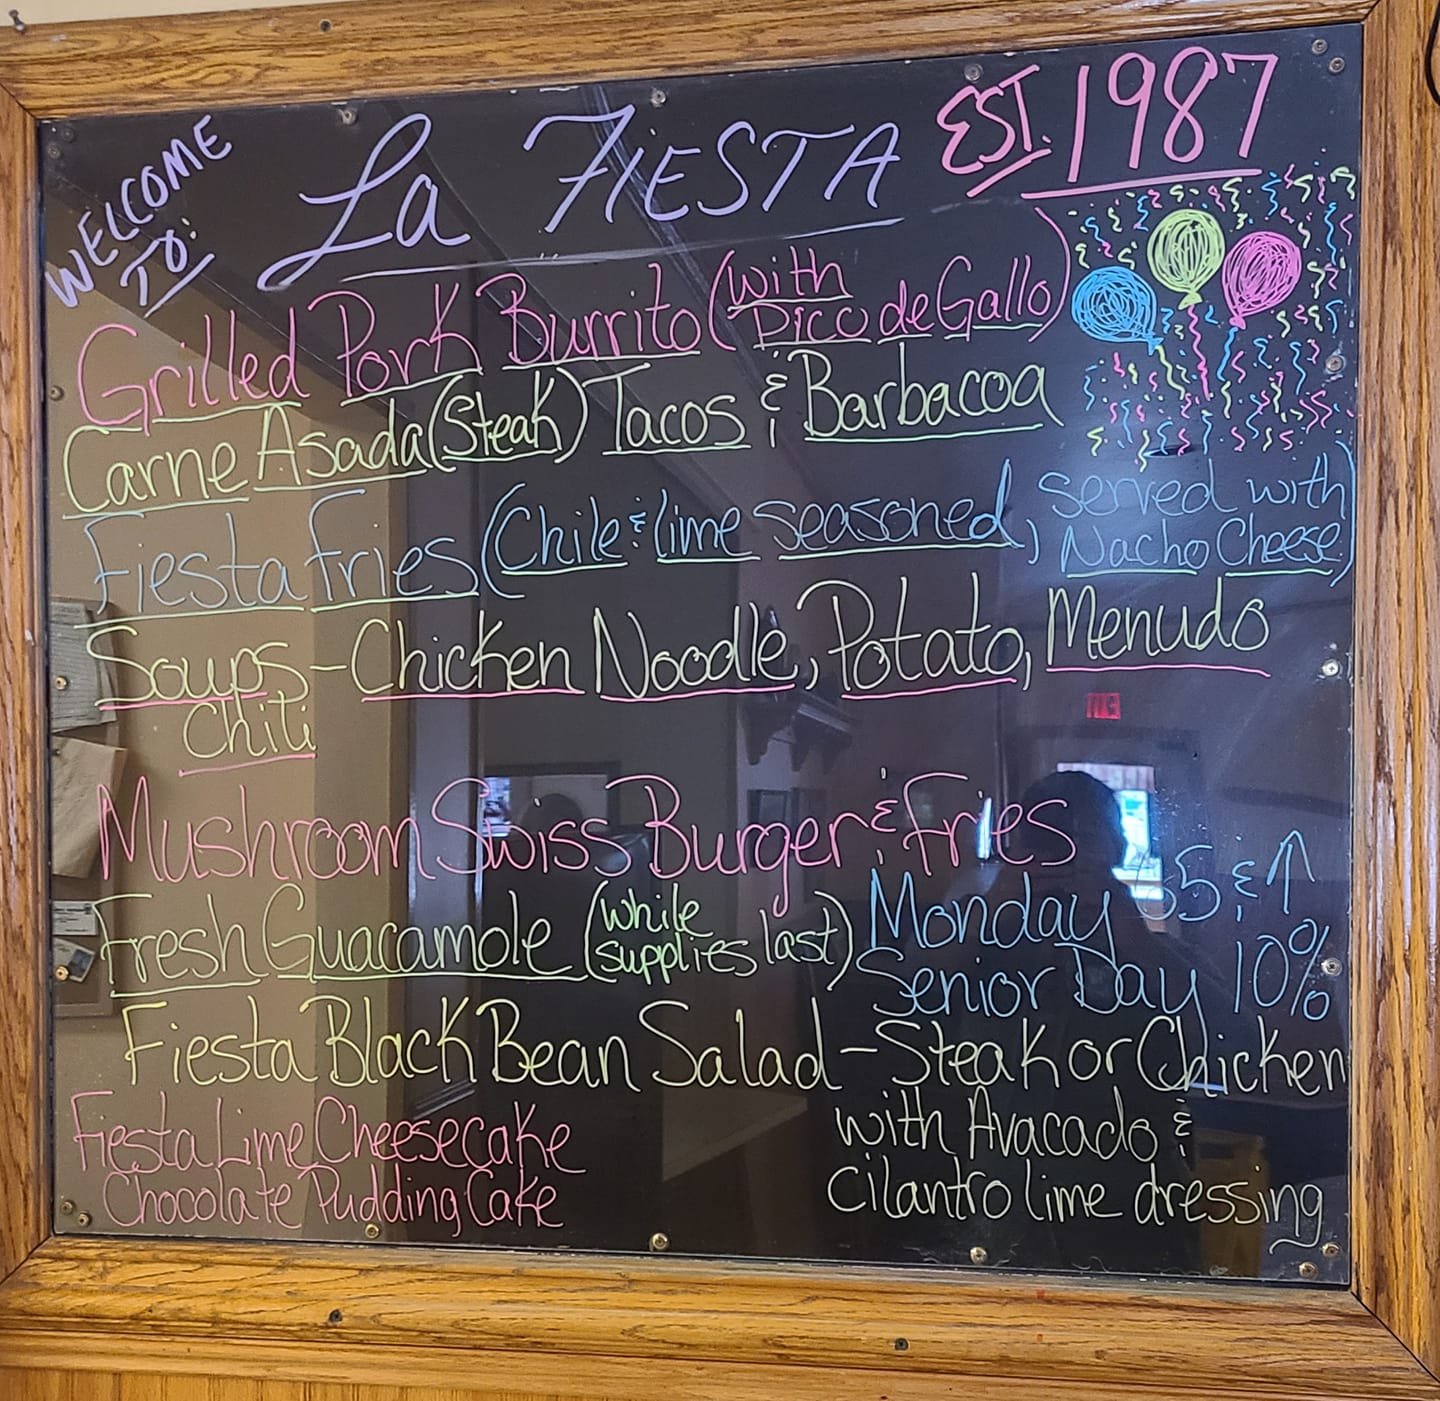 WELCOME TO: La FIESTA EST. 1987
Grilled Pork Burrito (with Pico de Gallo)
Carne Asada (Steak) Tacos & Barbacoa
Fiesta Fries (Chile & lime seasoned, served with Nacho Cheese)
Soups - Chicken Noodle, Potato, Menudo
Chili
Mushroom Swiss Burger & Fries
Fresh Guacamole (while supplies last)
Monday 65 & ↑
Senior Day 10%
Fiesta Black Bean Salad - Steak or Chicken
with Avacado &
Cilantro lime dressing
Fiesta Lime Cheesecake
Chocolate Pudding Cake